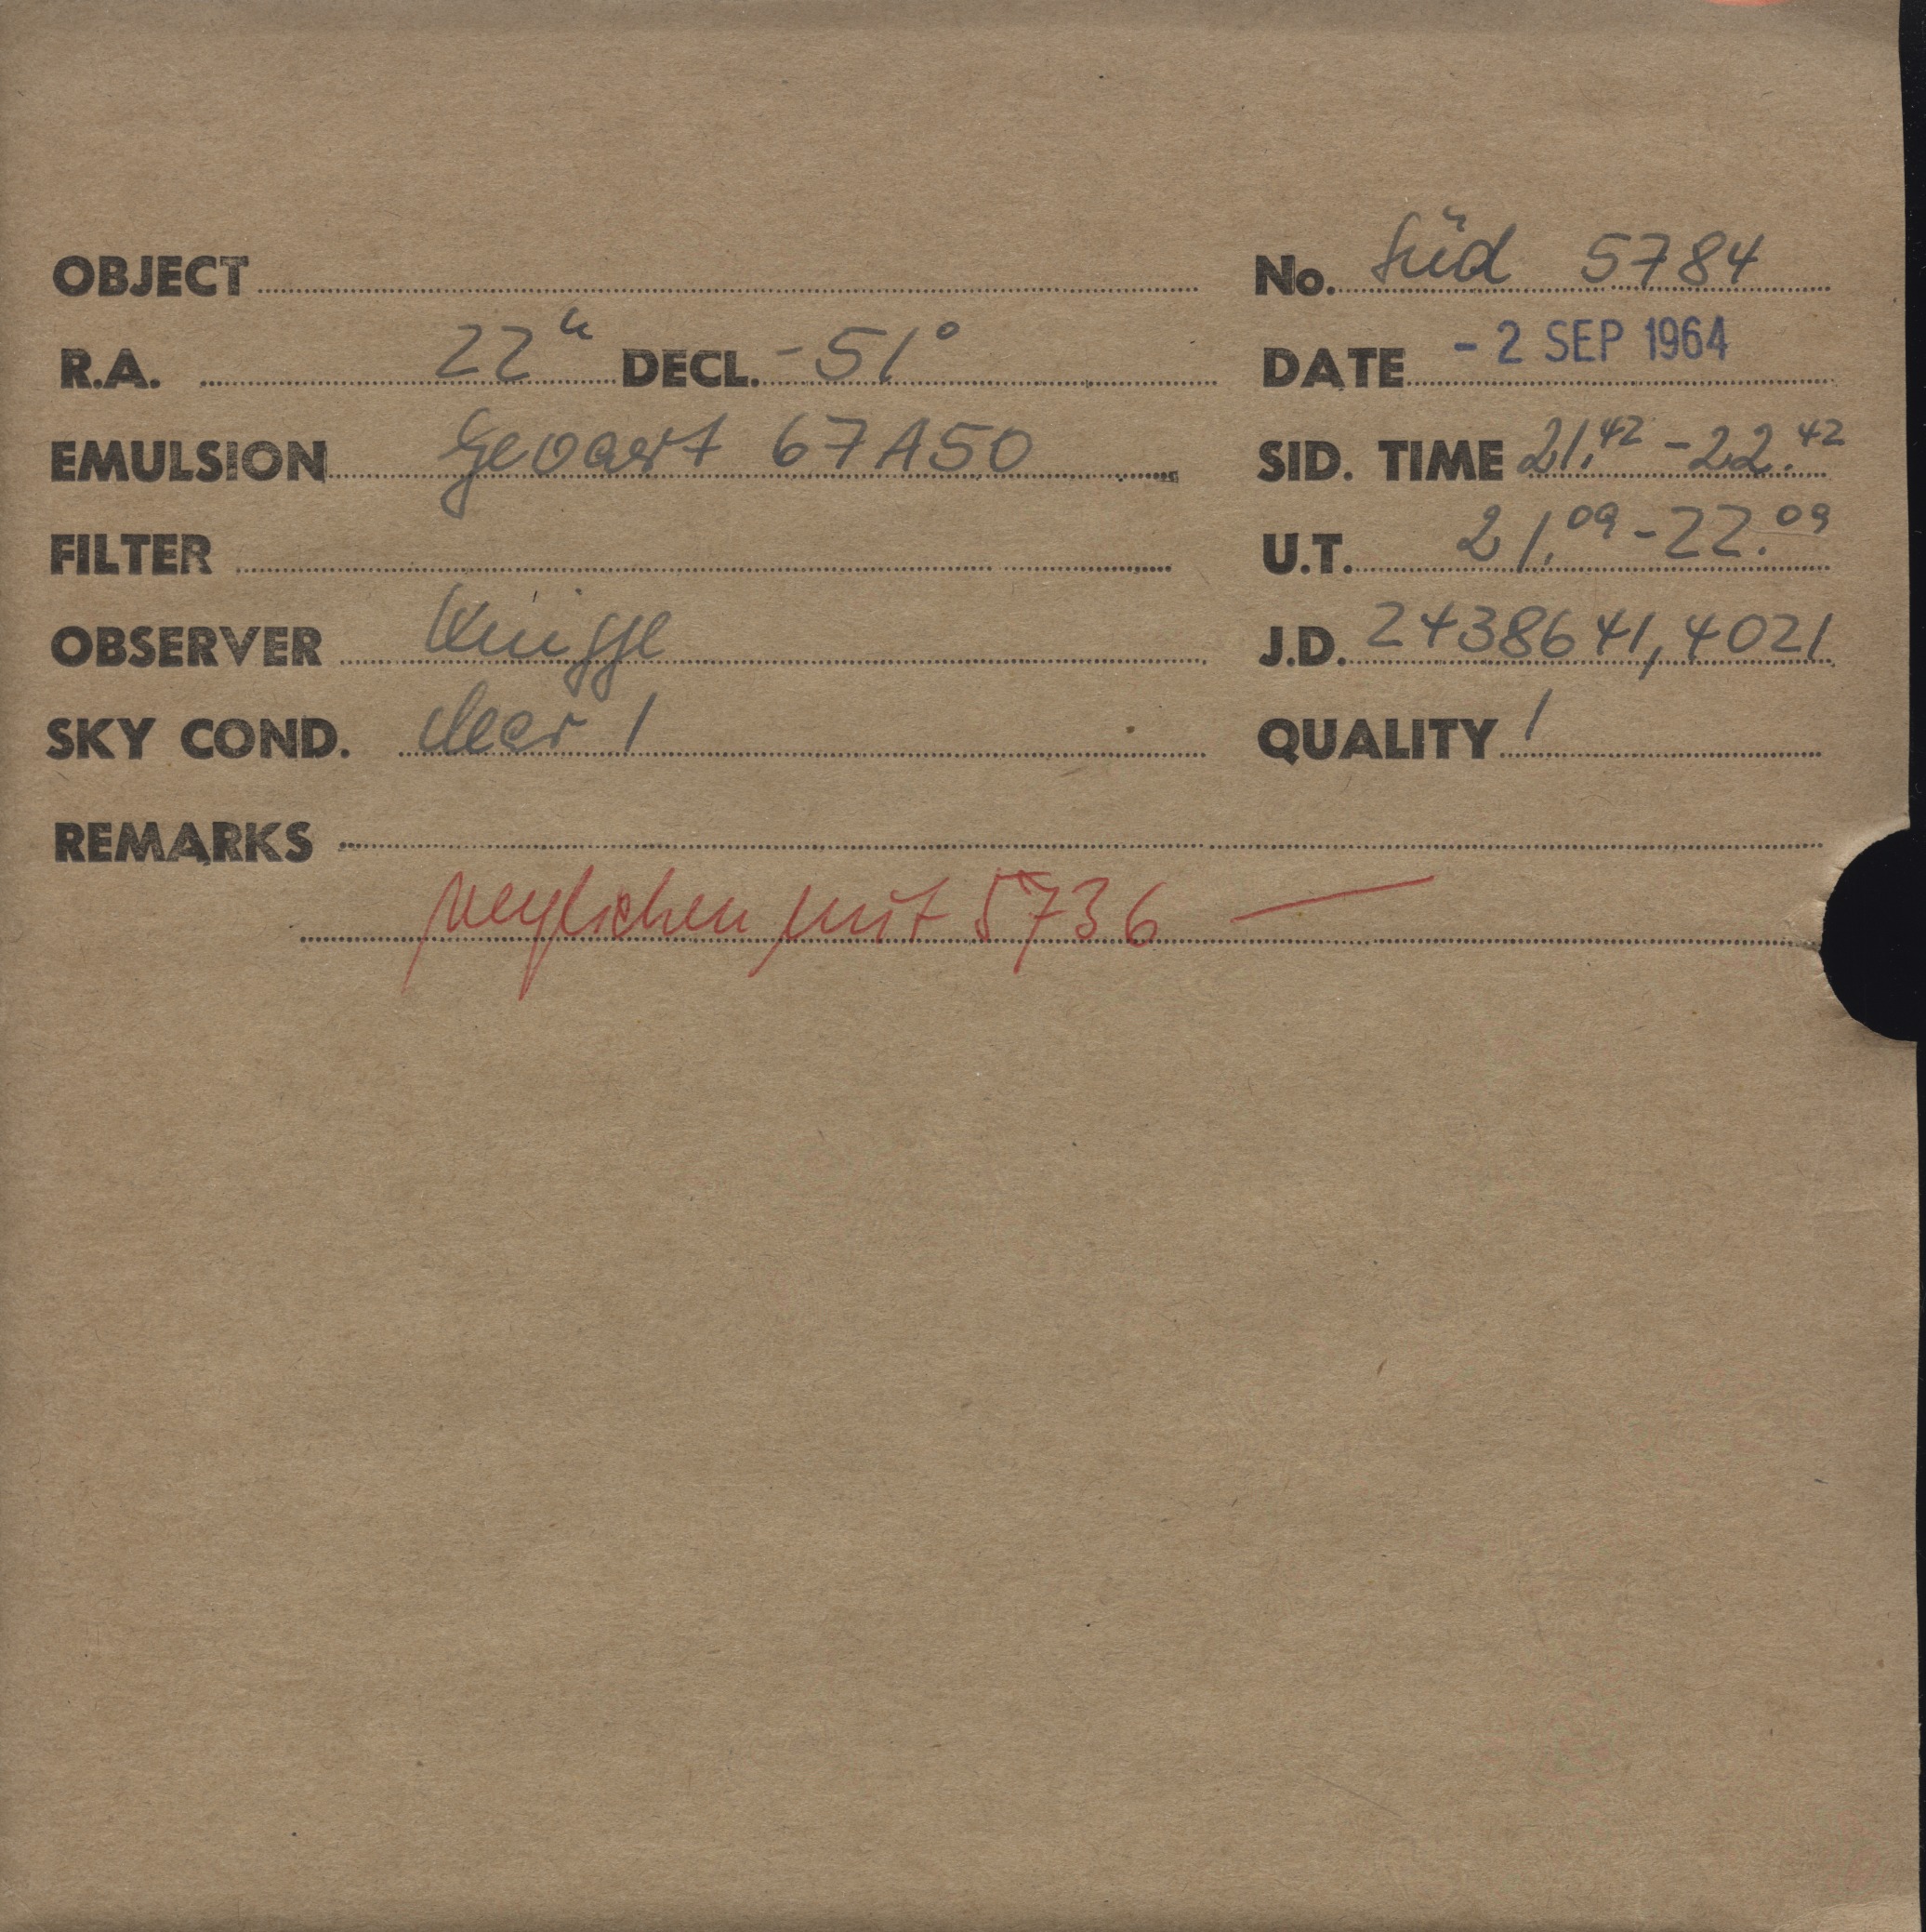 OBJECT No. Süd 5784
R.A. 22h DECL. -51° DATE - 2 SEP 1964
EMULSION Gevaert 67A50 SID. TIME 21.42 - 22.42
FILTER U.T. 21.09 - 22.09
OBSERVER Knigge J.D. 2438641,4021
SKY COND. clear 1 QUALITY 1
REMARKS
verglichen mit 5736 —